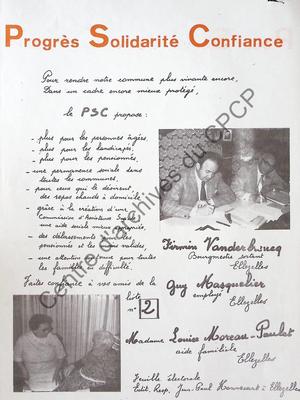 Progrès Solidarité Confiance
Pour rendre notre commune plus vivante encore,
Dans un cadre encore mieux protégé,
le PSC propose :
- plus pour les personnes âgées,
- plus pour les handicapés,
- plus pour les pensionnés,
- une permanence sociale dans
toutes les communes,
- pour ceux qui le désirent,
des repas chauds à domicile
- grâce à la création d'une
Commission d'Assistance
une aide sociale mieux
- des délassements
pensionnés et les moins valides,
- une attention pour toutes
les familles en difficulté.
Faites confiance à vos amis de la
liste
n° 2
Firmin Vanderbrucq
Bourgmestre sortant
Ellezelles
Guy Masquelier
employé
Ellezelles
Madame Louise Moreau-Paulet
aide familiale
Ellezelles
Feuille électorale
Edit. Resp. Jean-Paul à Ellezelles
Centre d'archives du CPCP